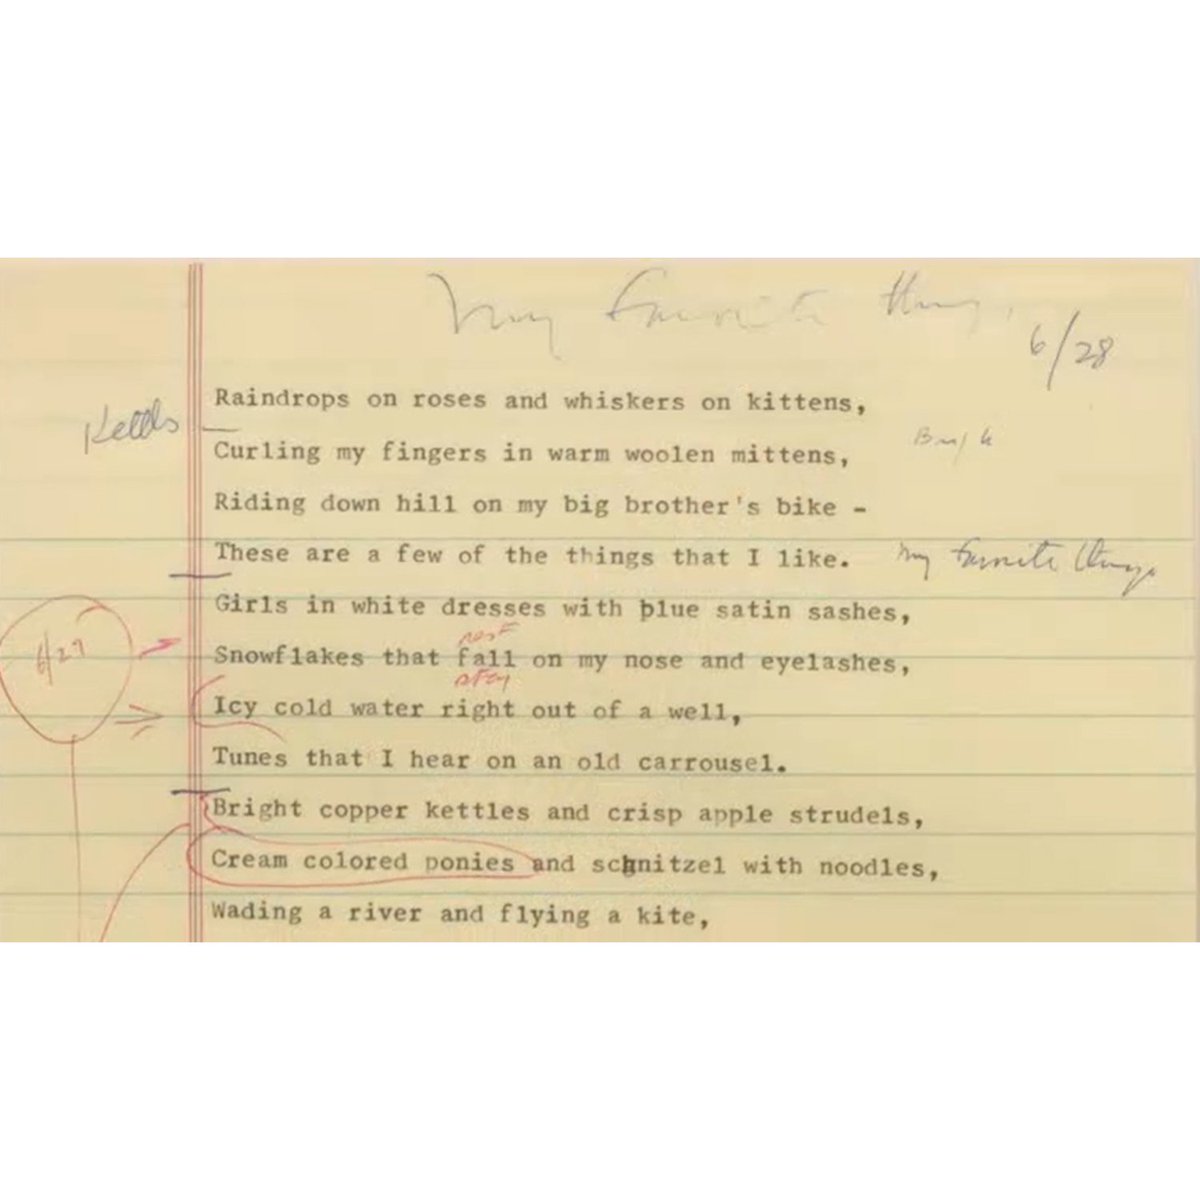 My favorite things
6/28
Raindrops on roses and whiskers on kittens,
Kettles
Curling my fingers in warm woolen mittens,
Riding down hill on my big brother's bike -
These are a few of the things that I like. my favorite things
Girls in white dresses with blue satin sashes,
6/27
rest
Snowflakes that fall on my nose and eyelashes,
stay
Icy cold water right out of a well,
Tunes that I hear on an old carrousel.
Bright copper kettles and crisp apple strudels,
Cream colored ponies and schnitzel with noodles,
Wading a river and flying a kite,